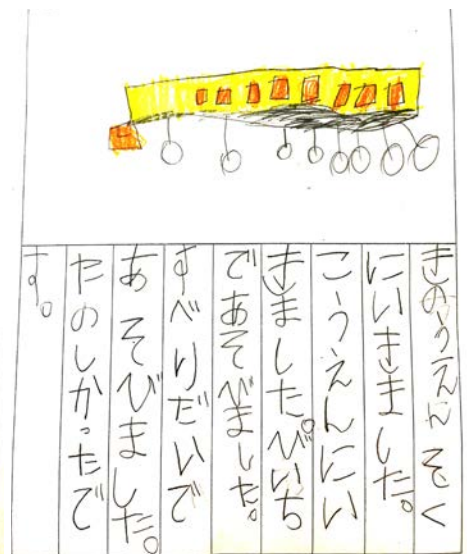 きのうえんそく
にいきました。
こうえんにい
きました。びいち
であそびました。
すべりだいで
あそびました。
たのしかったで
す。